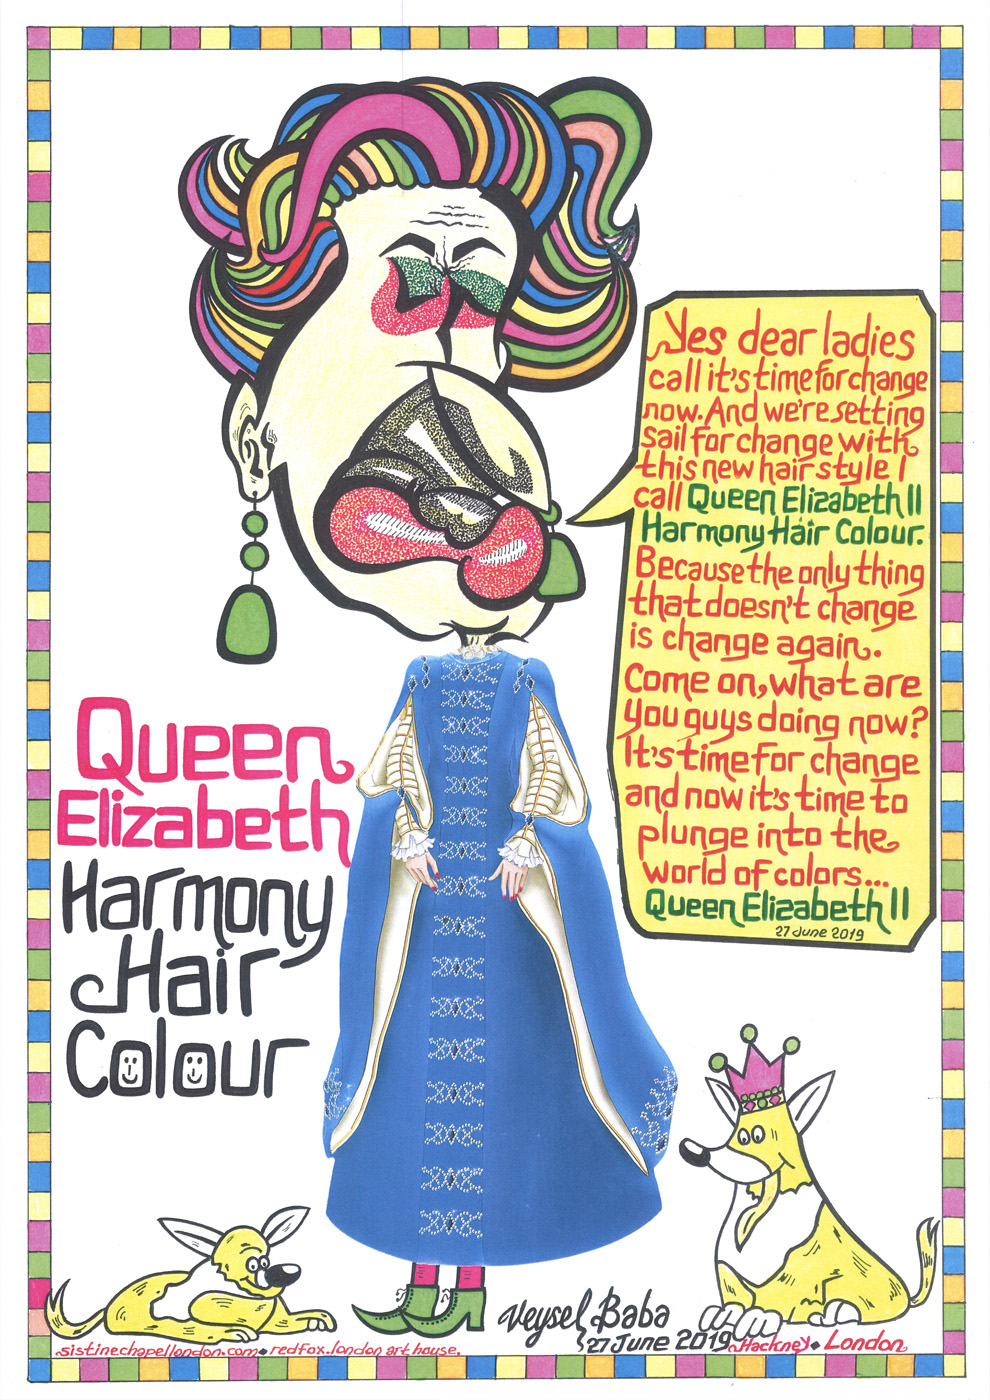 Yes dear ladies
call it's time for change
now. And we're setting
sail for change with
this new hair style I
call Queen Elizabeth II
Harmony Hair Colour.
Because the only thing
that doesn't change
is change again.
Come on, what are
you guys doing now?
It's time for change
and now it's time to
plunge into the
world of colors...
Queen Elizabeth II
27 June 2019
Queen
Elizabeth
Harmony
Hair
Colour
Veysel Baba
27 June 2019 Hackney • London
sistinechapellondon.com • redfox.london art house.